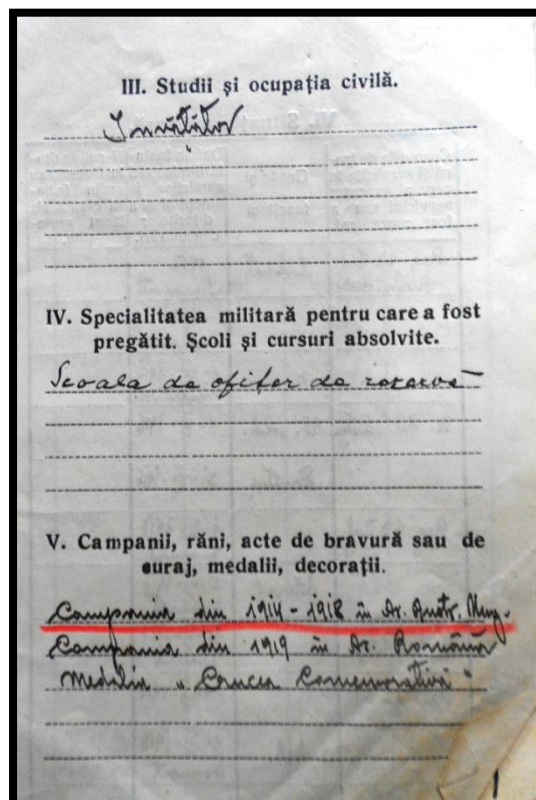 III. Studii și ocupația civilă.
Învățător
IV. Specialitatea militară pentru care a fost
pregătit. Școli și cursuri absolvite.
Scoala de ofițer de rezervă
V. Campanii, răni, acte de bravură sau de
curaj, medalii, decorații.
Campania din 1914 - 1918 în Ar. Austr. Ung.
Campania din 1919 în Ar. Română
Medalia „Crucea Comemorativă"